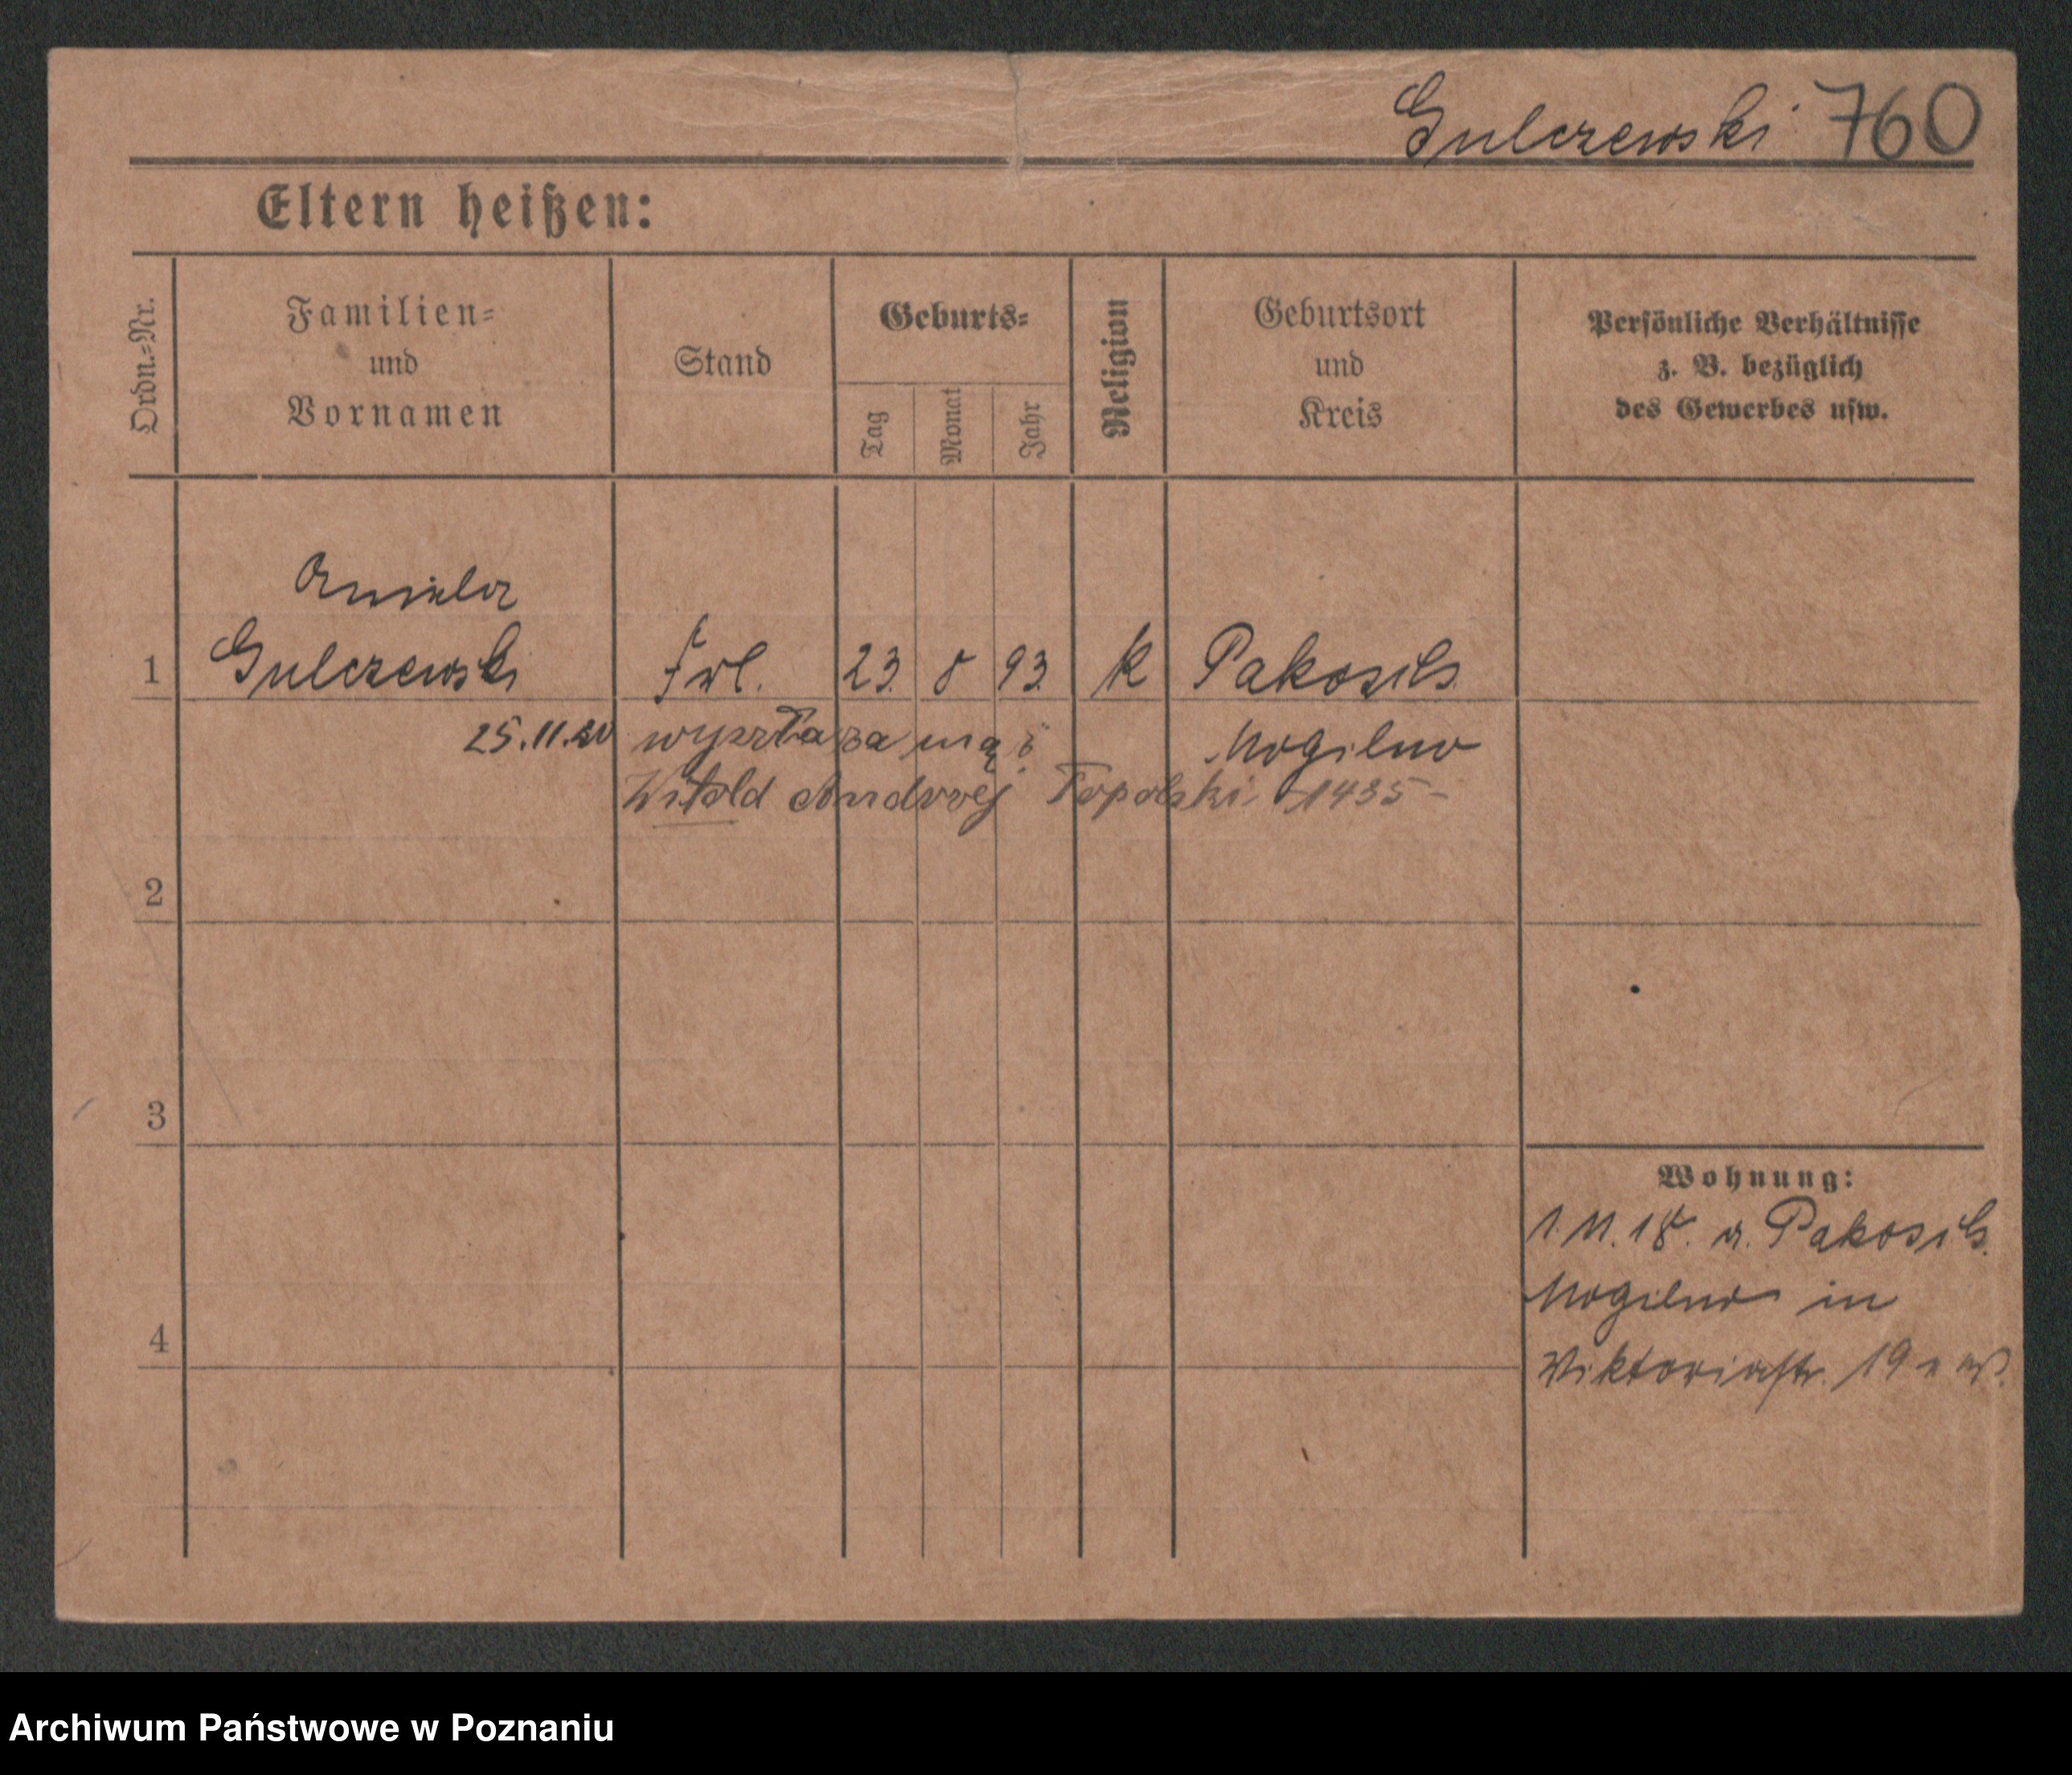 Gulczewski 760
Eltern heißen:
Ordn.-Nr.
Familien-
und
Vornamen
Stand
Geburts-
Tag
Monat
Jahr
Religion
Geburtsort
und
Kreis
Persönliche Verhältnisse
z. B. bezüglich
des Gewerbes usw.
Aniela
1 Gulczewski Frl. 23. 8 93. k Pakosch
25.11.20 wyszła za mąż Mogilno
Witold Andrzej Topolski 1435-
2
3
4
Wohnung:
1.11.18. a. Pakosch
Mogilno in
Viktoriastr. 19
Archiwum Państwowe w Poznaniu